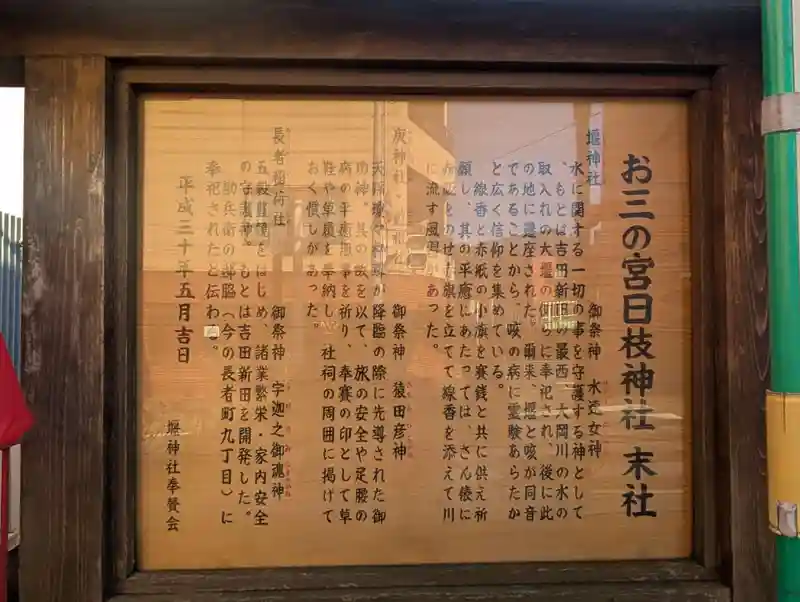 お三の宮日枝神社 末社
堰神社 御祭神 水速女神
水に関する一切の事を守護する神として
、もとは吉田新田の最西、大岡川の水の
取入れの大堰の傍らに奉祀され、後に此
の地に遷座された。爾来、堰と咳が同音
であることから、咳の病に霊験あらたか
と広く信仰を集めている。
線香と赤紙の小旗を賽銭と共に供え祈
願し、其の平癒にあたっては、さん俵に
赤飯をのせ赤旗を立てて線香を添えて川
に流す風習があった。
庚神社 御祭神 猿田彦神
天孫瓊々杵尊が降臨の際に先導された御
功神。其の故を以て、旅の安全や足腰の
病の平癒無事を祈り、奉賽の印として草
鞋や草履を奉納し、社祠の周囲に掲げて
おく慣しがあった。
長者稲荷社 御祭神 宇迦之御魂神
五穀豊穣をはじめ、諸業繁栄・家内安全
の守護神。もとは吉田新田を開発した。
勘兵衛の邸脇(今の長者町九丁目)に
奉祀されたと伝わる。
平成二十年五月吉日
堰神社奉賛会